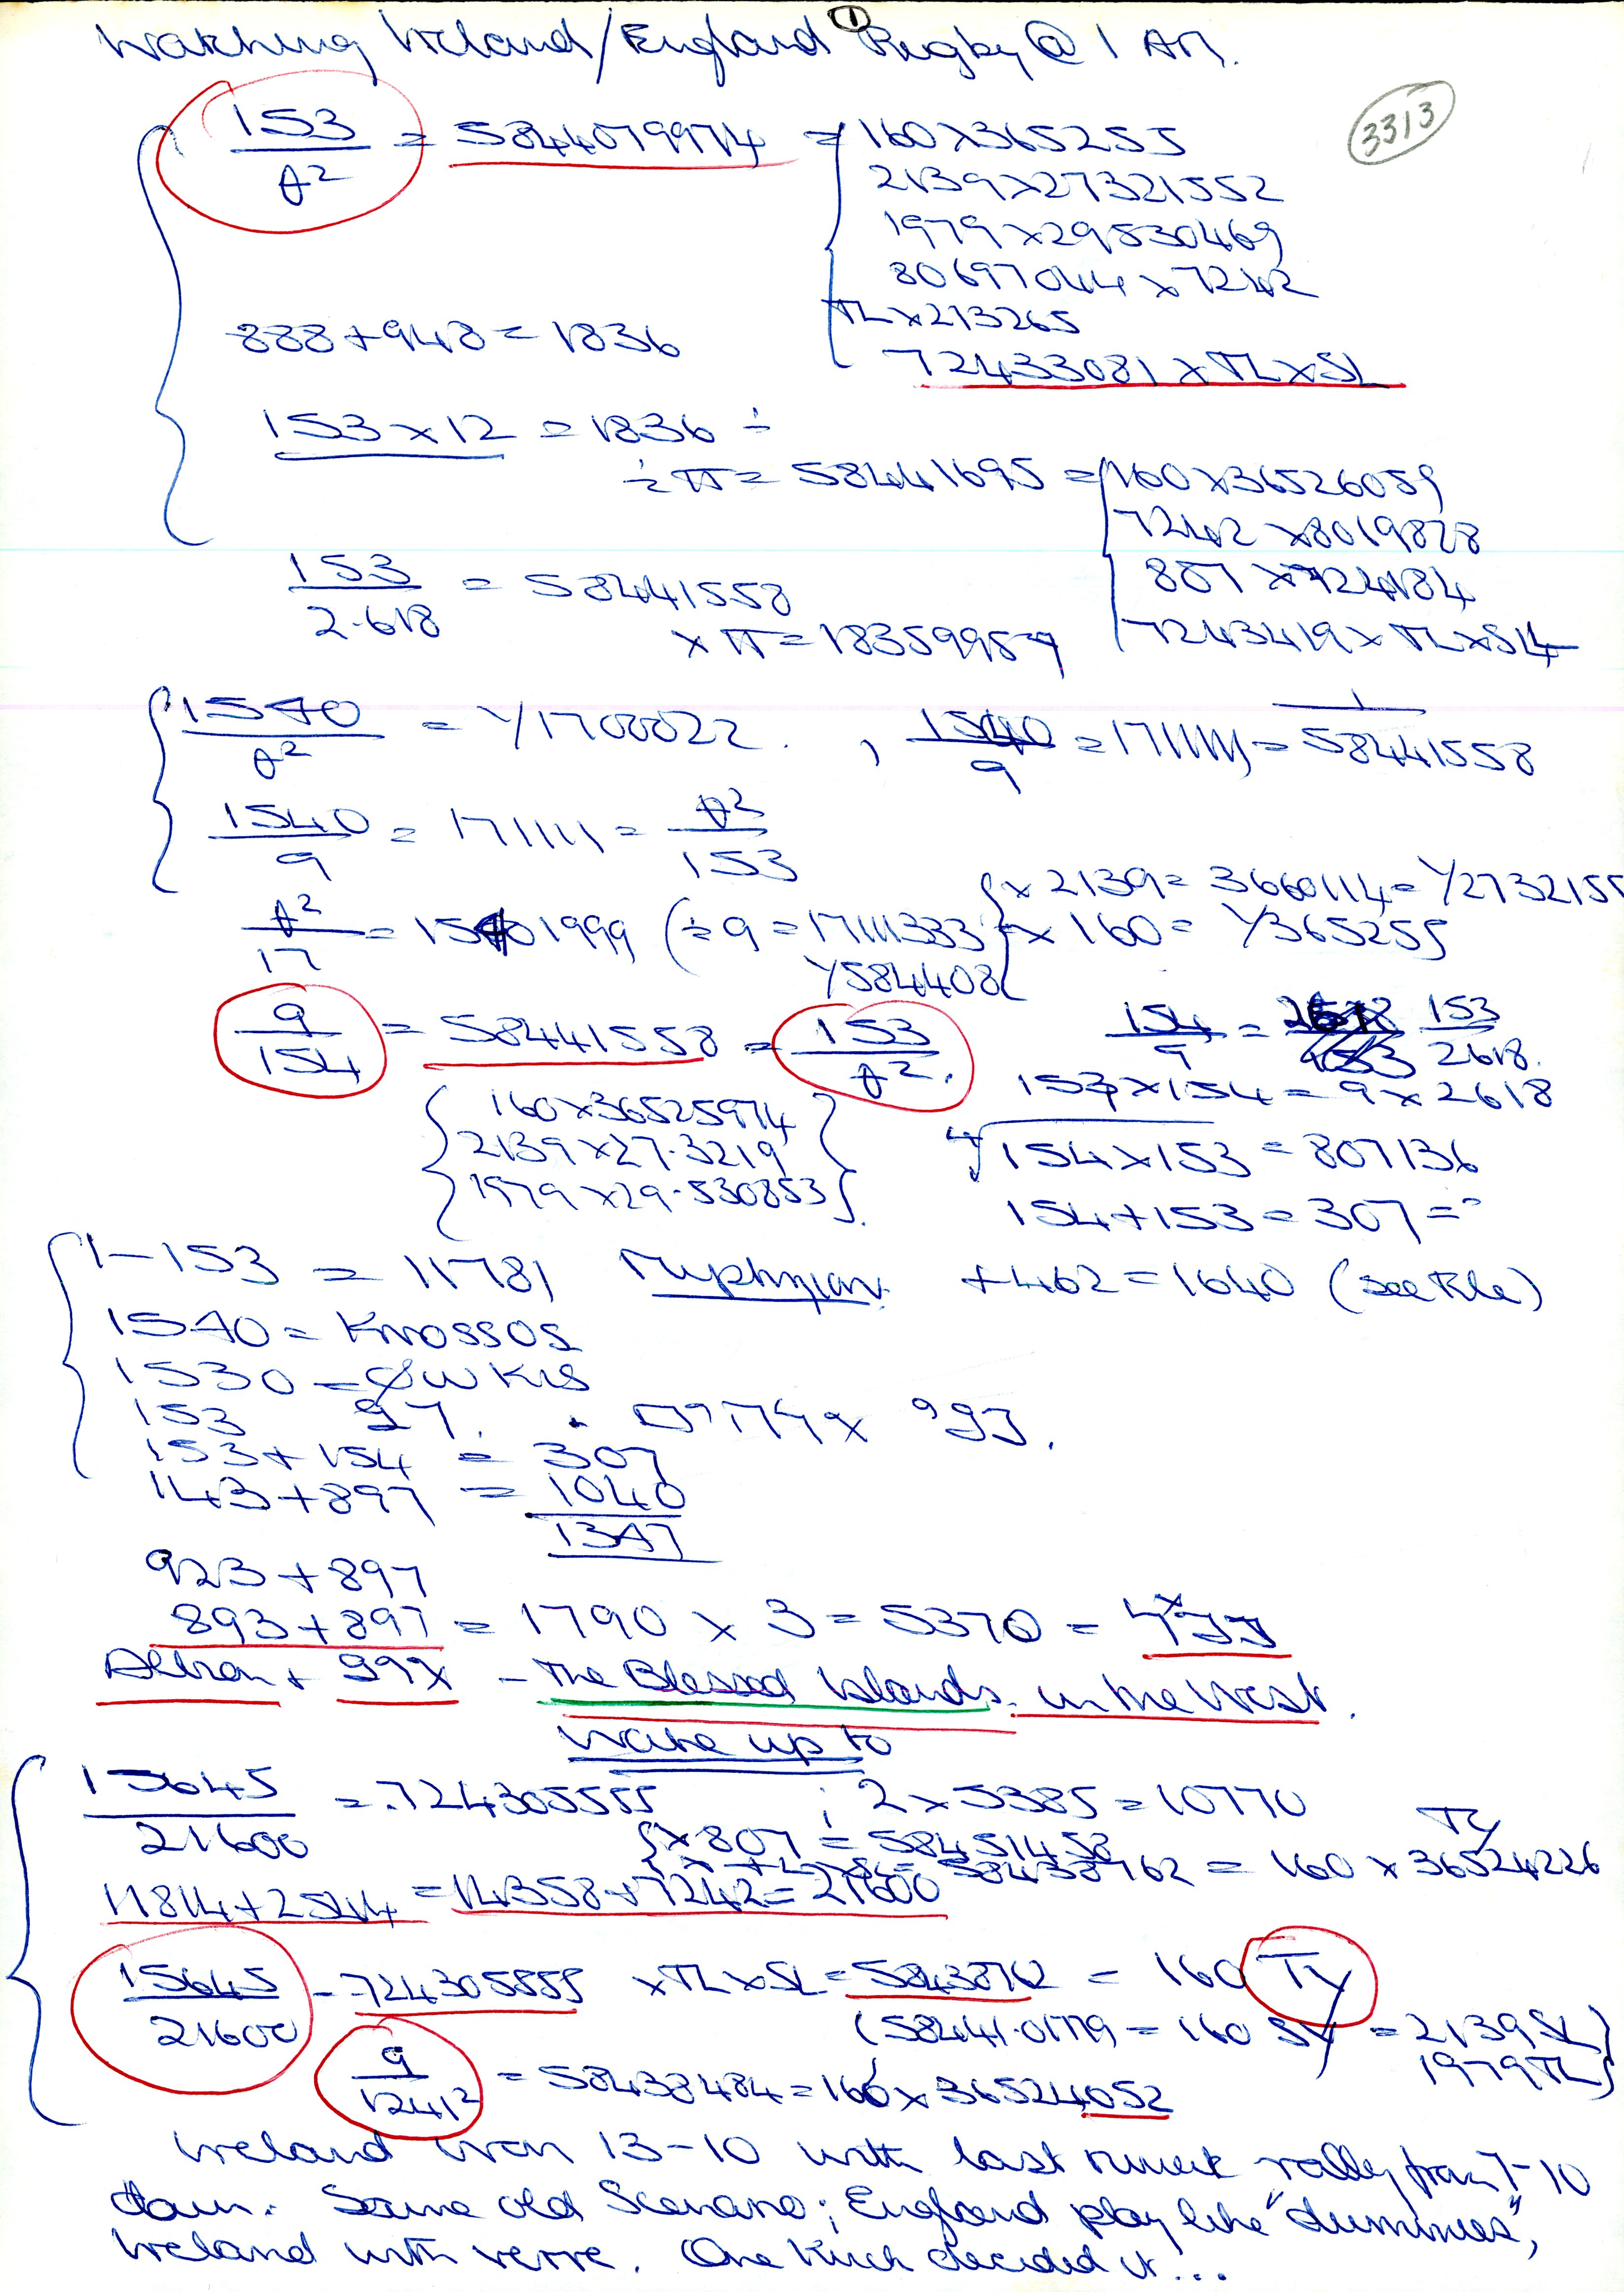 1
Watching Ireland/England Rugby @ 1 AM.
3313
153 / θ² = 5844079974 = 160 x 365255
2139 x 27321552
1979 x 29530469
80697044 x 7242
TL x 213265
72433081 x TL x SL
888 + 948 = 1836
153 x 12 = 1836 ÷
÷ π = 58441695 = 160 x 36526059
7242 x 8019828
807 x 724184
7243419 x TL x SL
153 / 2.618 = 58441558
x π = 18359957
1540 / θ² = 1/1700022. , 1540 / 9 = 171111 = 1 / 58441558
1540 / 9 = 171111 = θ² / 153
θ² / 17 = 15401999 (÷ 9 = 17111333
1/584408
x 2139 = 3660114 = 1/2732155
x 160 = 1/365255
9 / 154 = 58441558 = 153 / θ².
154 / 9 = 153 / 2618.
160 x 36525974
2139 x 27.3219
1979 x 29.530853
153 x 154 = 9 x 2618
4√154 x 153 = 807136
154 + 153 = 307 =
1–153 = 11781 + 462 = 1640 (see File)
1540 = Knossos
1530 =
153
153 + 154 = 307
143 + 897 = 1040
1347
923 + 897
893 + 897 = 1790 x 3 = 5370 =
– The Blessed Islands. in the West.
Wake up to
15645 / 21600 = .724305555 ; 2 x 5385 = 10770
x 807 = 58451458
58438762 = 160 x 36524226
Ty
11814 + 2544 = 14358 + 7242 = 21600
15645 / 21600 – 724305555 x TL x SL = 58438762 = 160 Ty
(58441.01779 = 160 Sy = 2139 SL
1979 TL)
9 / 1241² = 58438484 = 160 x 36524052
Ireland won 13–10 with last minute rally from 7–10
down. Same old Scenario; England play like "dummies",
Ireland with verve. One Kick decided it...